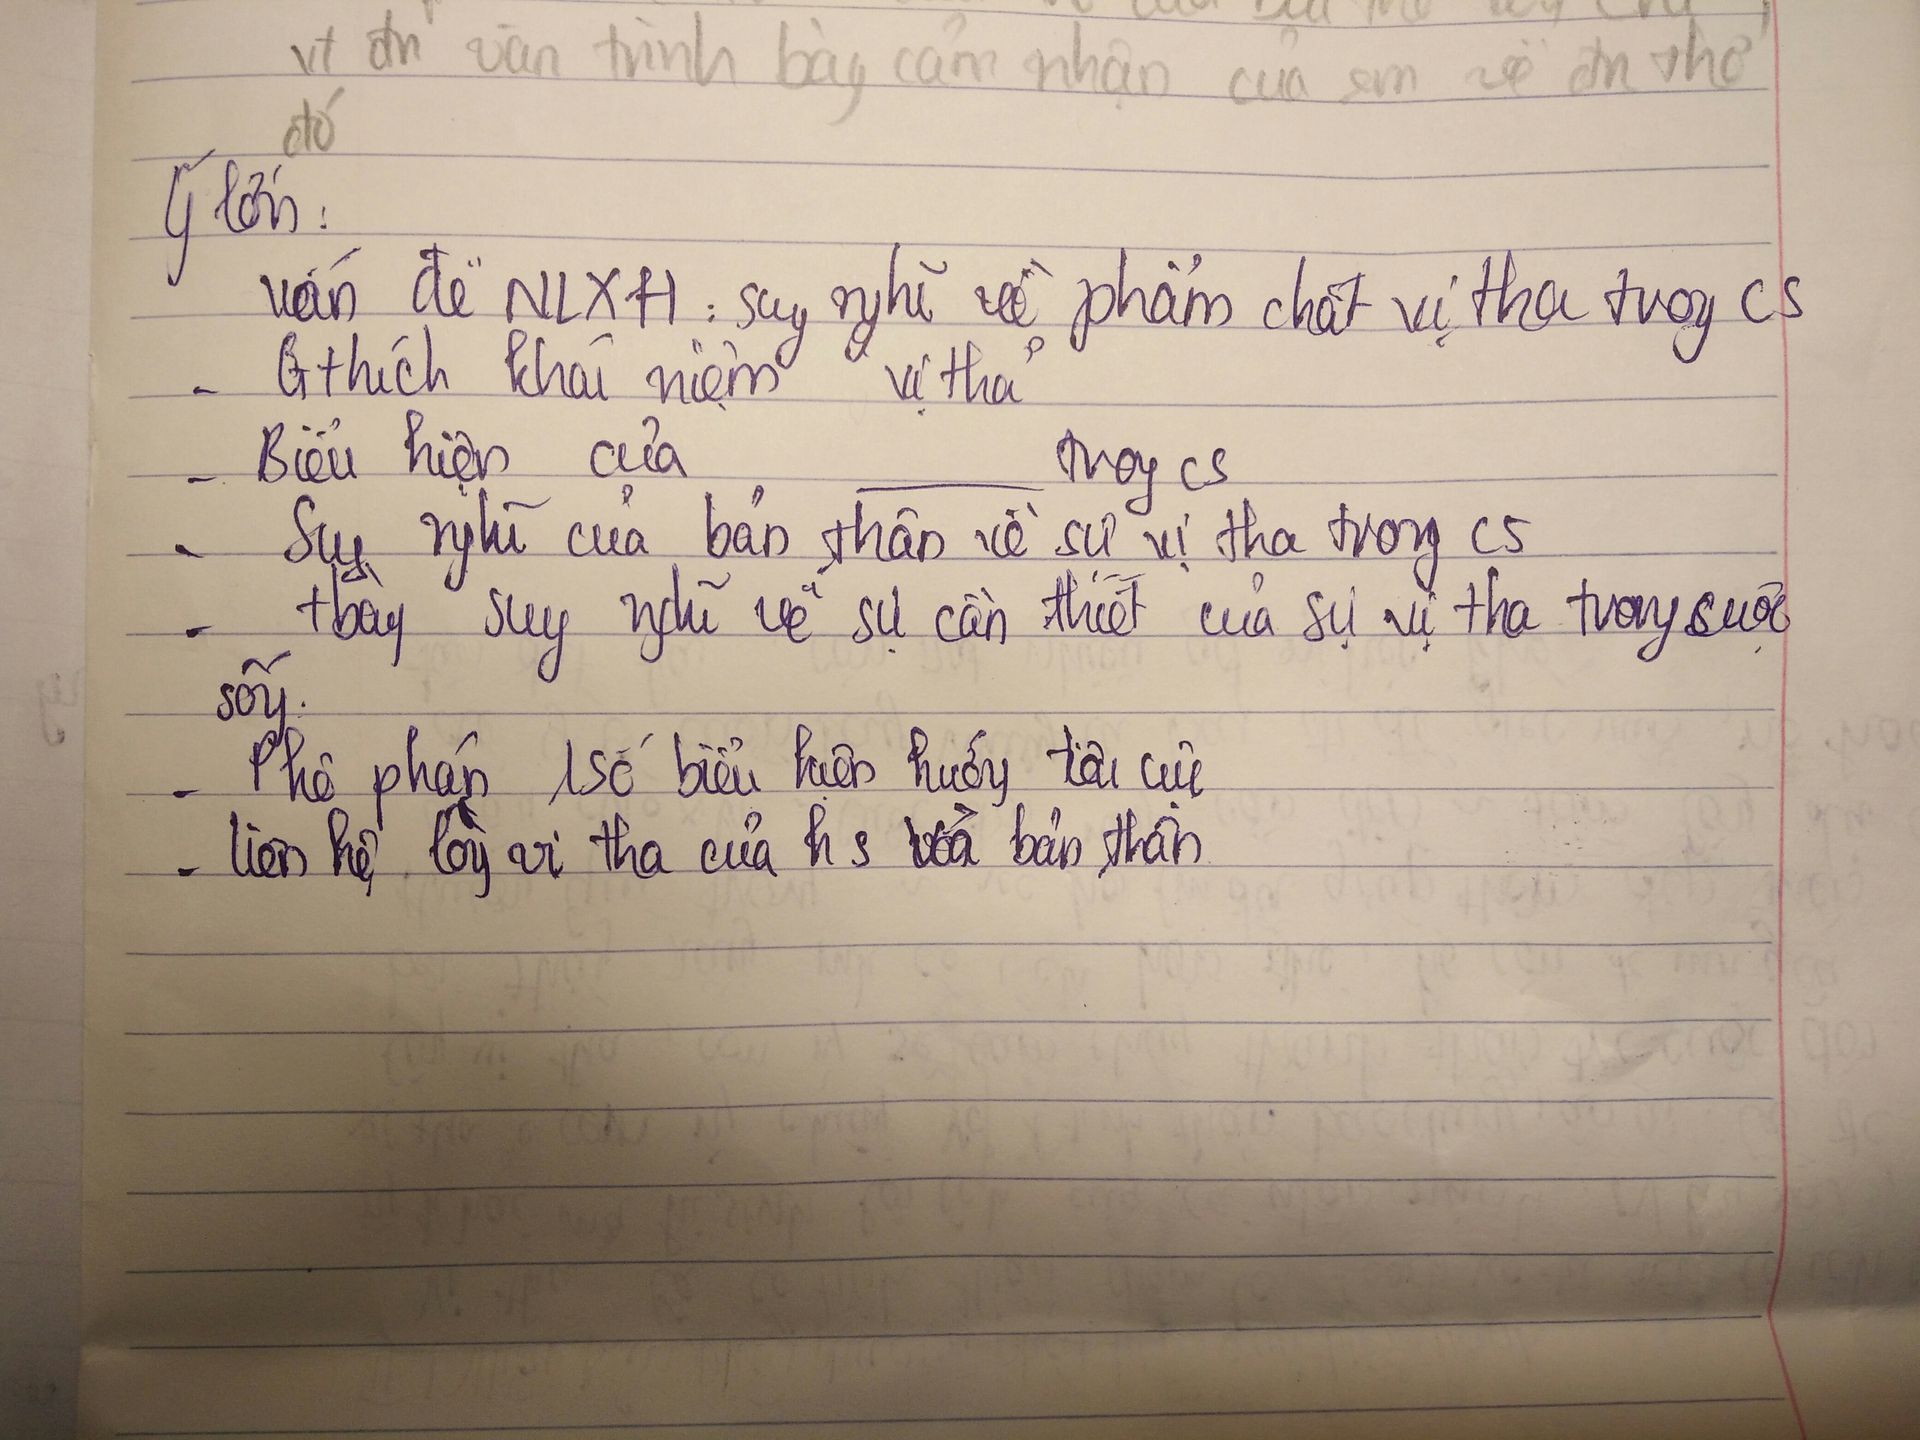 vt đn văn trình bày cảm nhận của em về đn thơ
đó
Ý lớn:
vấn đề NLXH: suy nghĩ về phẩm chất vị tha trog cs
- Gthích khái niệm "vị tha"
- Biểu hiện của ___ trog cs
- Suy nghĩ của bản thân về sự vị tha trong cs
- tbày suy nghĩ về sự cần thiết của sự vị tha trong cuộc
sốg.
- Phê phán 1 số biểu hiện hướg tiêu cực
- liên hệ lòg vị tha của hs và bản thân